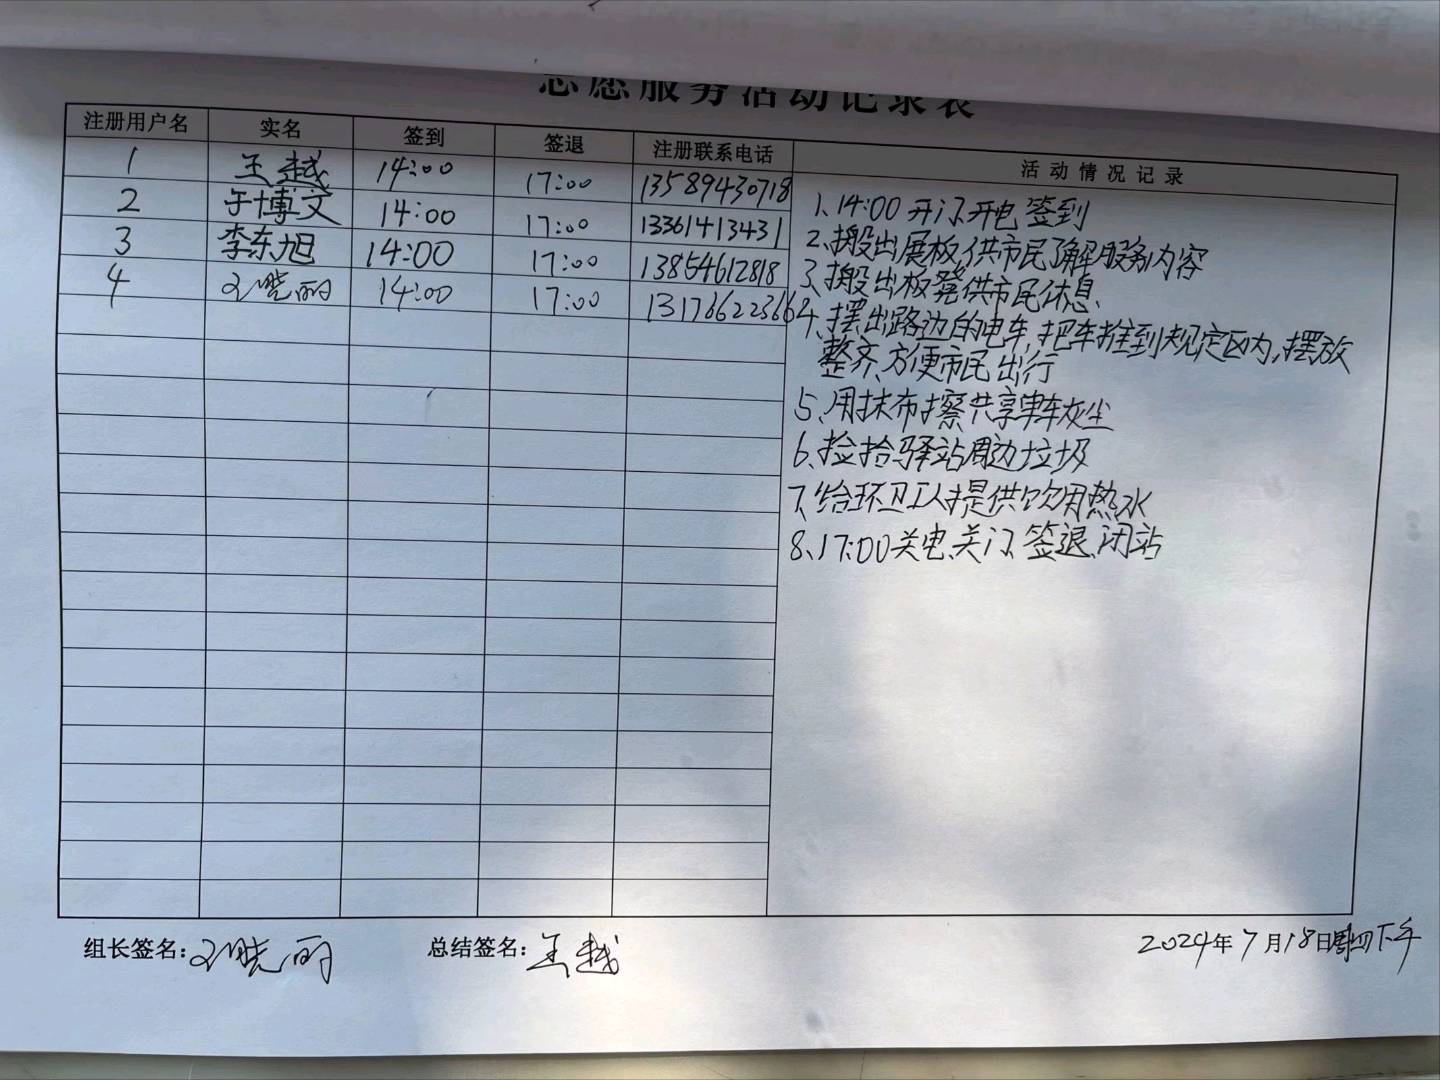 志愿服务活动记录表
注册用户名 实名 签到 签退 注册联系电话 活动情况记录
1 王越 14:00 17:00 13589430718
2 于博文 14:00 17:00 13361413431
3 李东旭 14:00 17:00 13854612818
4 王晓丽 14:00 17:00
1、14:00开门、开电 签到
2、搬出展板,供市民了解服务内容
3、搬出板凳供市民休息、
4、摆出路边的电车,把车推到规定区内,摆放
整齐、方便市民出行
5、用抹布擦共享单车灰尘
6、捡拾驿站周边垃圾
7、给环卫工人提供饮用热水
8、17:00关电、关门、签退、闭站
组长签名:王晓丽 总结签名:王越 2024年7月18日周四下午